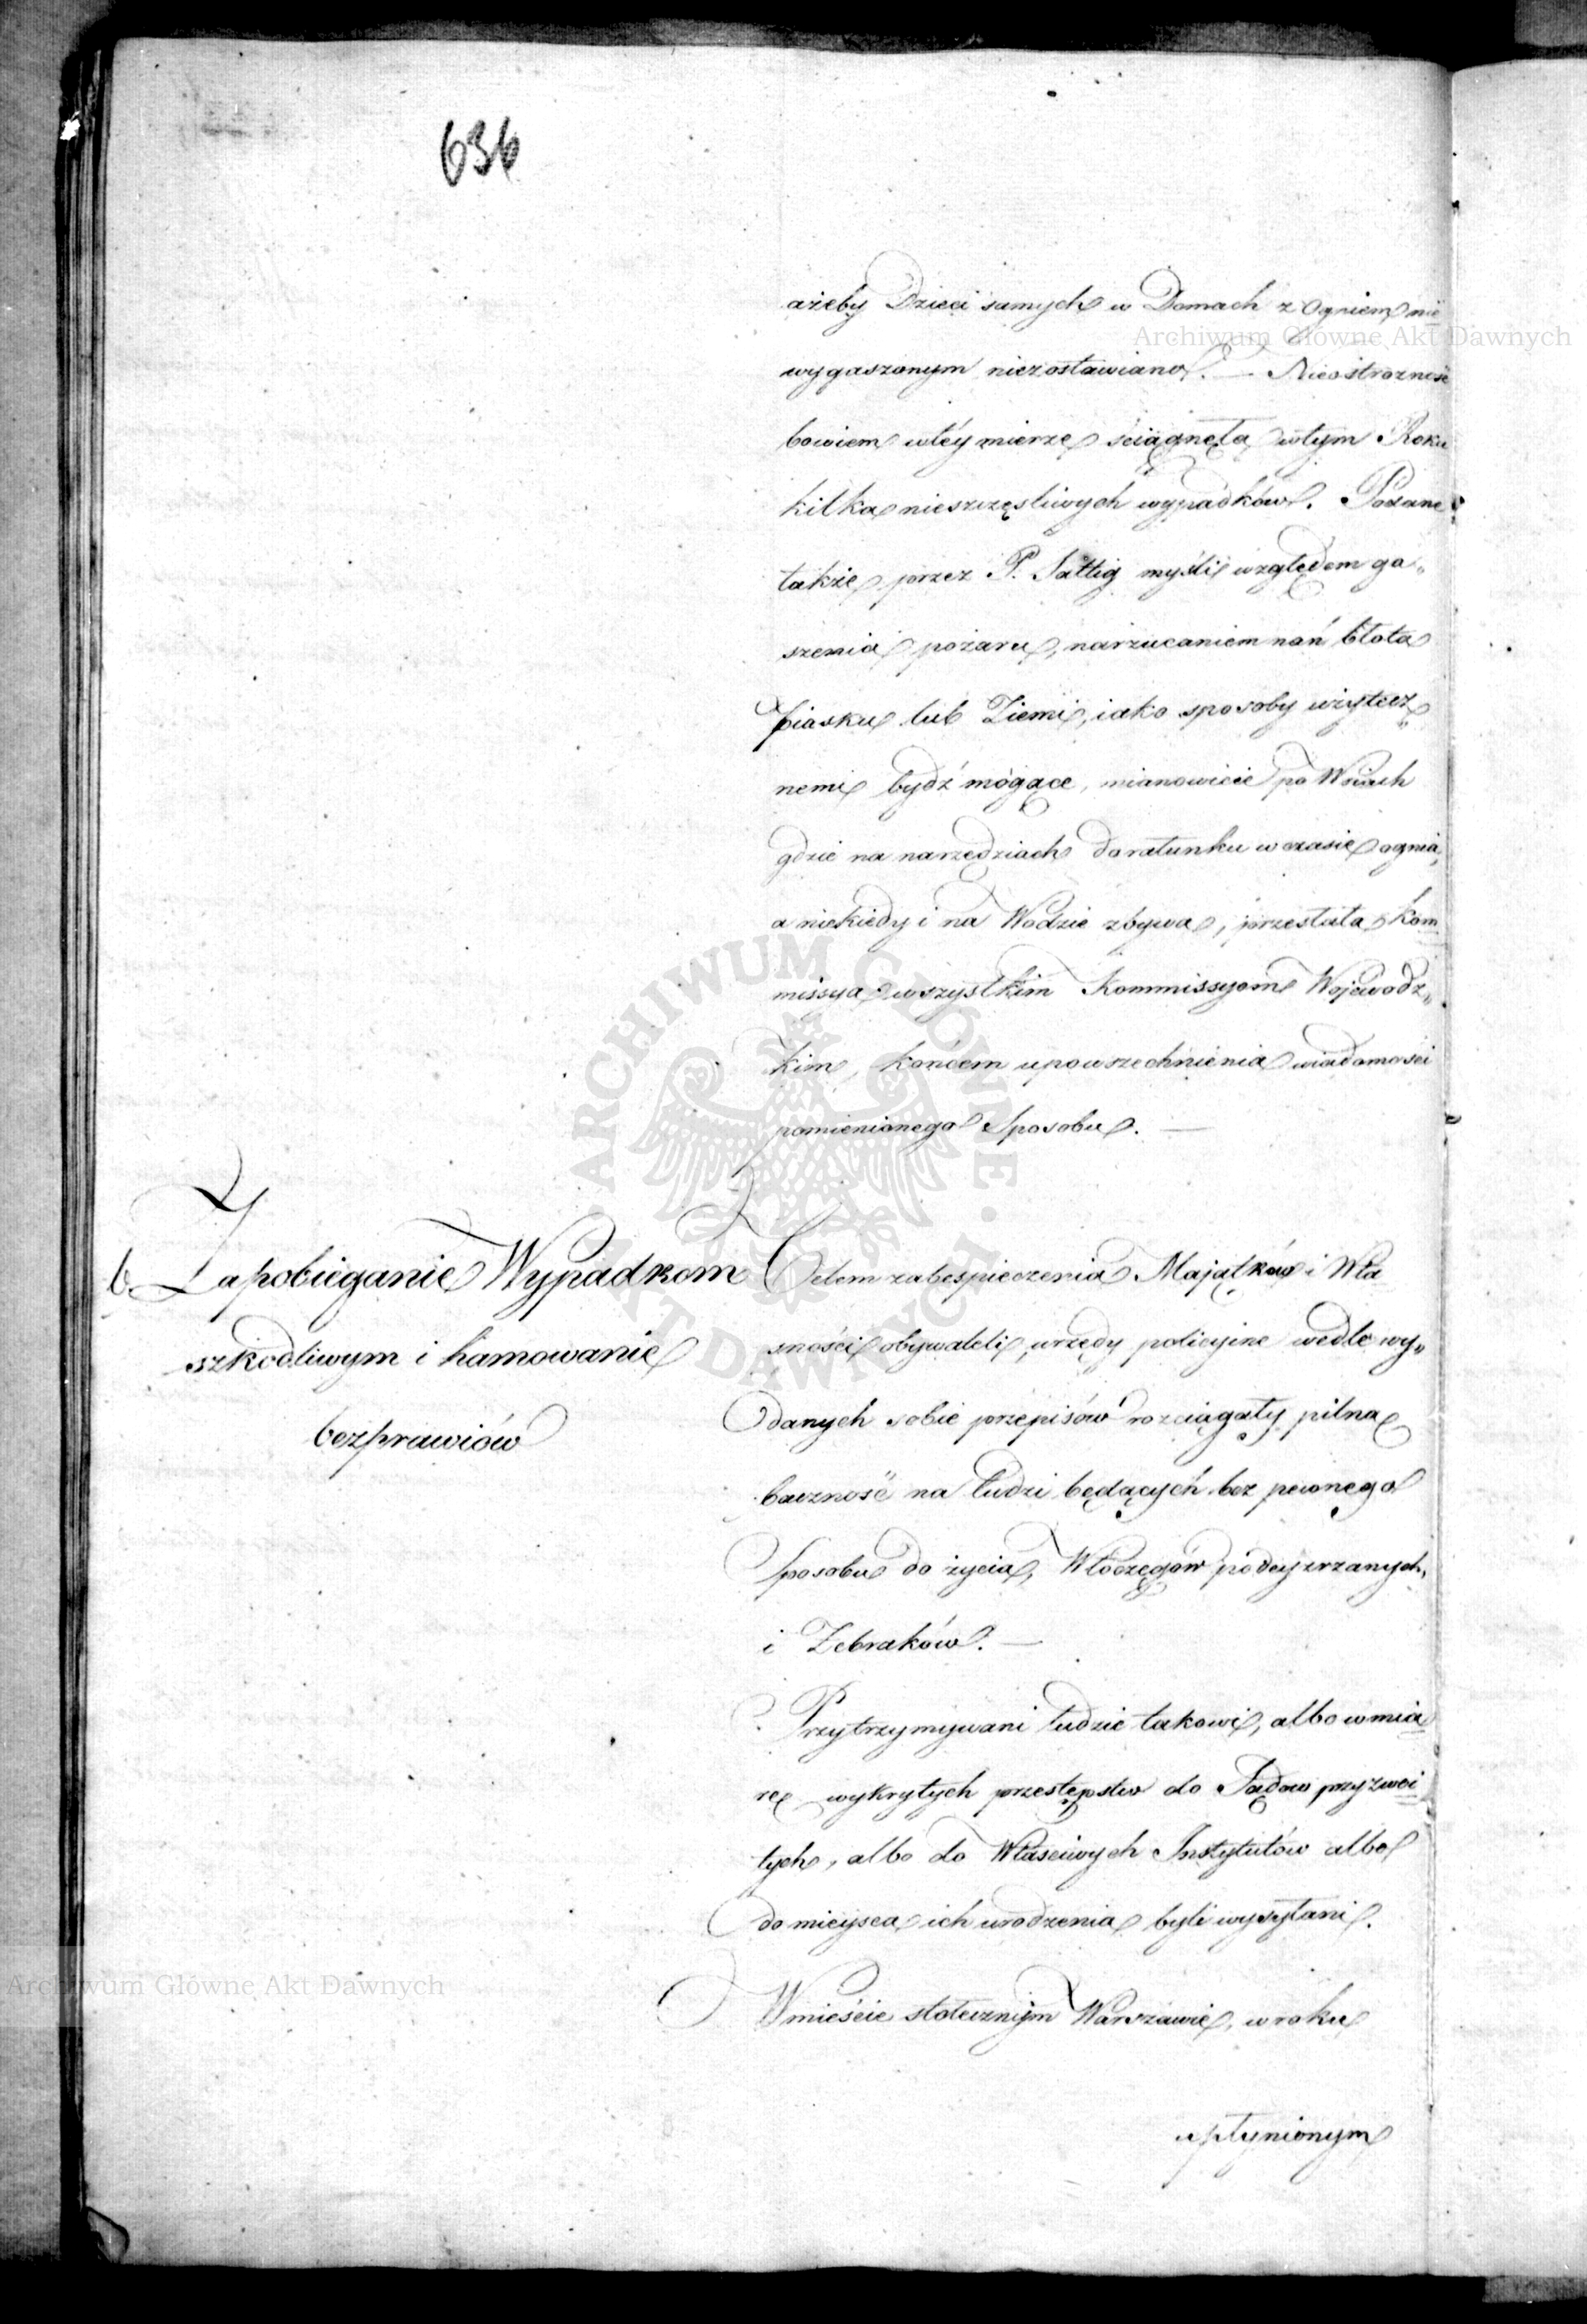 636
ażeby Dzieci samych w Domach z Ogniem nie
wygaszonym niezostawiano. — Nieostrożność
bowiem wtéy mierze ściągnęła wtym Roku
kilka nieszczęsliwych wypadków. Podane
także przez P. Sattig myśli względem ga„
szenia pożaru, narzucaniem nań błota
piasku lub Ziemi, iako sposoby użytecz„
nemi bydź mogące, mianowicie po Wsiach
gdzie na narzędziach do ratunku w czasie ognia,
a niekiedy i na Wodzie zbywa, przesłała Kom
missya wszystkim Kommissyom Wojewodz„
kim, końcem upowszechnienia wiadomości
pomienionego Sposobu. —
b. Zapobieganie Wypadkom
szkodliwym i hamowanie
bezprawiów
Celem zabespieczenia Majątków i Wła
sności obywateli, urzędy policyine wedle wy„
danych sobie przepisów rozciągały pilną
baczność na ludzi będących bez pewnego
Sposobu do życia, Włóczęgów podeyzrzanych,
i Żebraków. —
Przytrzymywani ludzie takowi, albo w mia
rę wykrytych przestępstw do Sądów przyzwoi
tych, albo do Właściwych Instytutów albo
do mieysca ich urodzenia byli wysyłani.
W mieście stołecznym Warszawie, w roku
upłynionym
Archiwum Główne Akt Dawnych
ARCHIWUM GŁÓWNE AKT DAWNYCH
Archiwum Główne Akt Dawnych